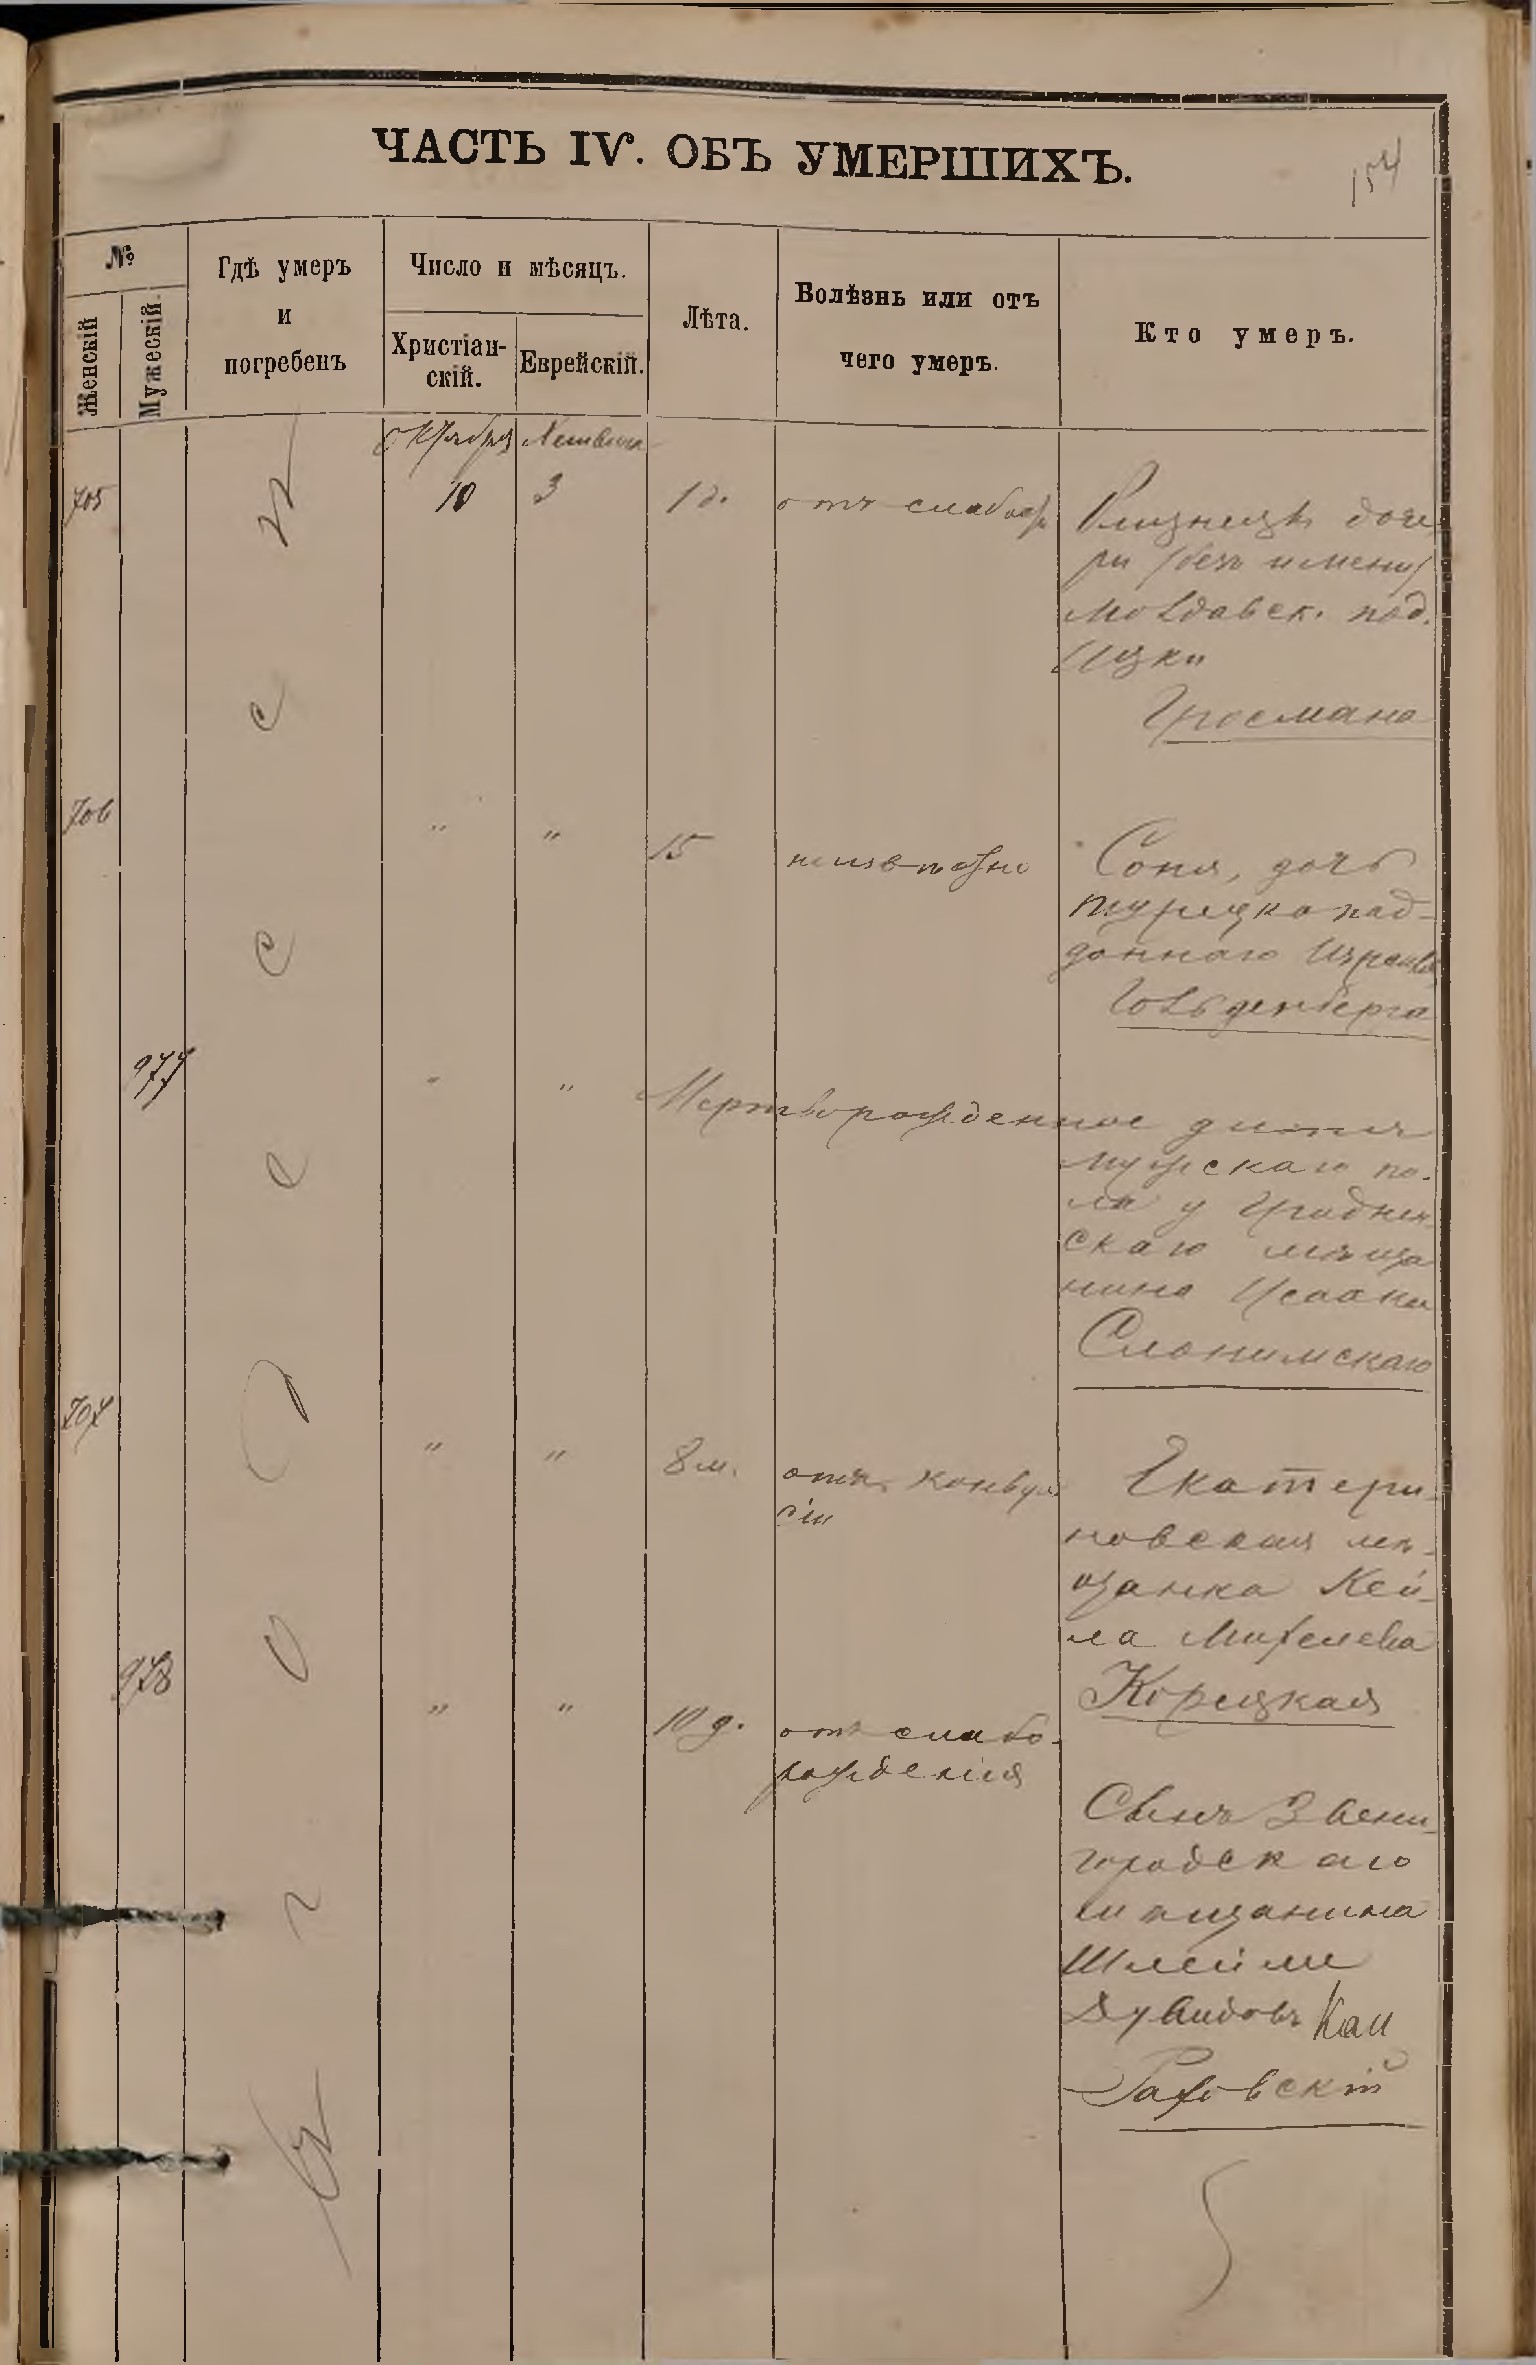 ЧАСТЬ IV. ОБЪ УМЕРШИХЪ.
154
№
Женскій
Мужескій
Гдѣ умеръ
и
погребенъ
Число и мѣсяцъ.
Христіан-
скій.
Еврейскій.
Лѣта.
Болѣзнь или отъ
чего умеръ.
Кто умеръ.
въ г. Одессѣ
Октября Хешвана
705 10 3 1 д. отъ слабости
Близнецъ доче-
ри (безъ имени)
молдавск. под.
Ицки
Гросмана
706 " " 15 неизвѣстно
Соня, дочь
турецко под-
доннаго Израиля
Гольденберга
977 " " Мертворожденное дитя
мужскаго по-
ла у Гроднен-
скаго мѣща
нина Исаака
Слонимскаго
707 " " 8 м. отъ конвуль
сіи
Екатери-
новская мѣ-
щанка Кей-
ла Михелева
Корецкая
978 " " 10 д. отъ слабо-
рожденія
Сынъ Звени-
городскаго
мѣщанина
Шлеймы
Дувидовъ Кан
Раховскій